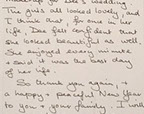 make-up for Dee's wedding
The girls all looked lovely, and
I think that, for once in her
life Dee felt confident that
she looked beautiful as well.
She enjoyed every minute
+ said it was the best day
of her life.
So thank you again,
a happy + peaceful New Year
to you + your family. I work